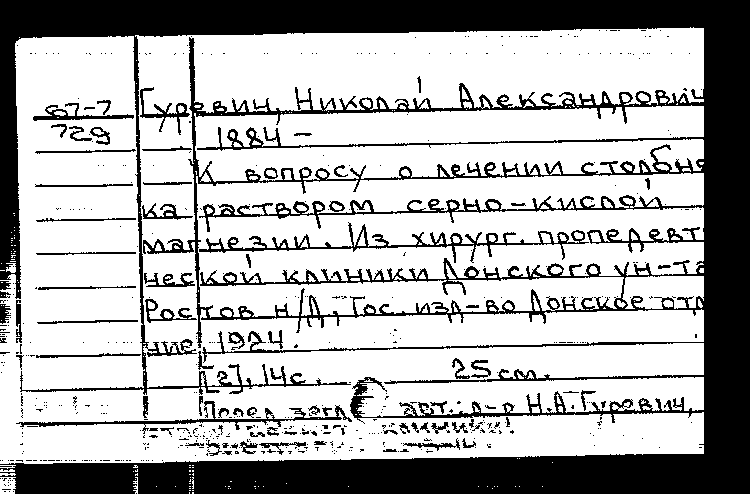 67-7 Гуревич, Николай Александрович
729 1884 –
К вопросу о лечении столбня
ка раствором серно-кислой
магнезии. Из хирург. пропедевти
ческой клиники Донского ун-та
Ростов н/Д, Гос. изд-во Донское отд
ние, 1924.
[2], 14 с. 25 см.
Перед загл. авт.: д-р Н.А. Гуревич,
клиники.